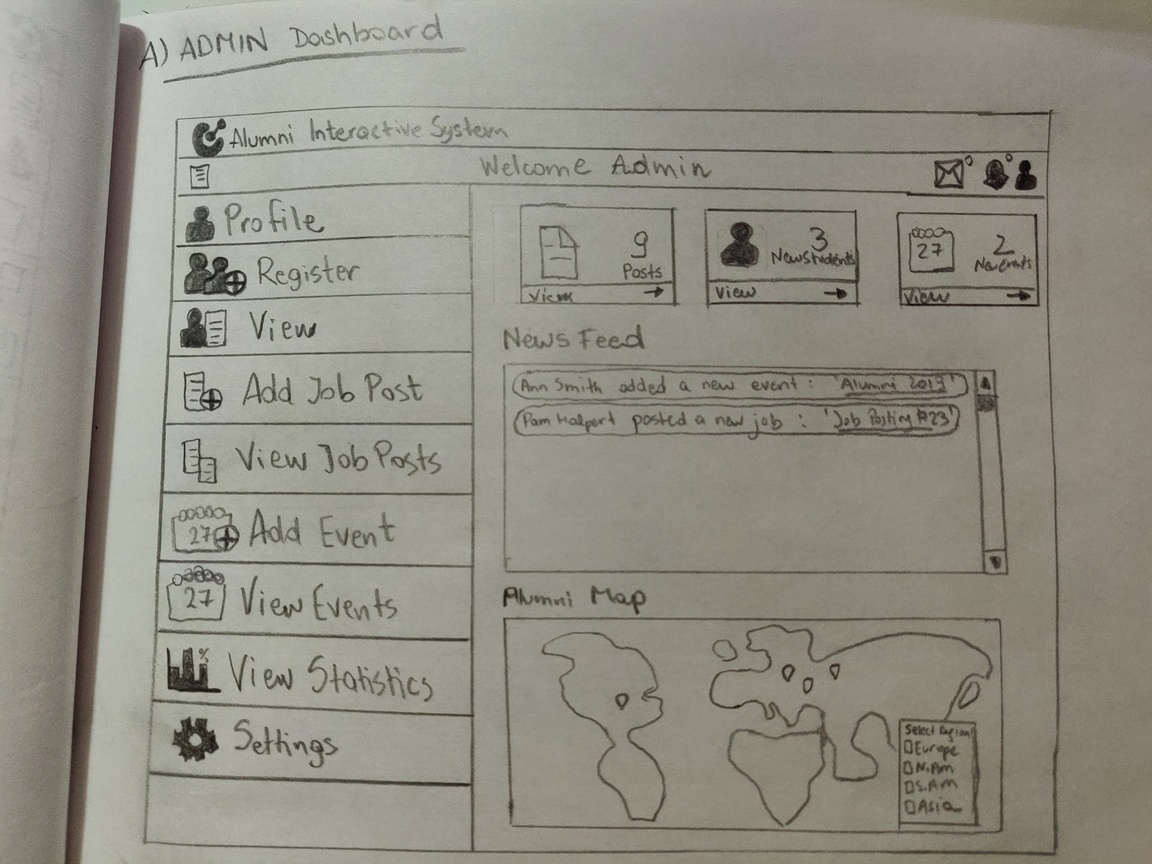 A) ADMIN Dashboard
Alumni Interactive System
Welcome Admin
Profile
Register
View
Add Job Post
View Job Posts
27
Add Event
27
View Events
%
View Statistics
Settings
9
Posts
View
3
New Students
View
27
2
New Events
View
News Feed
Ann Smith added a new event : 'Alumni 2019'
Pam Halpert posted a new job : 'Job Posting #23'
Alumni Map
Select Region
Europe
N.Am
S.Am
Asia